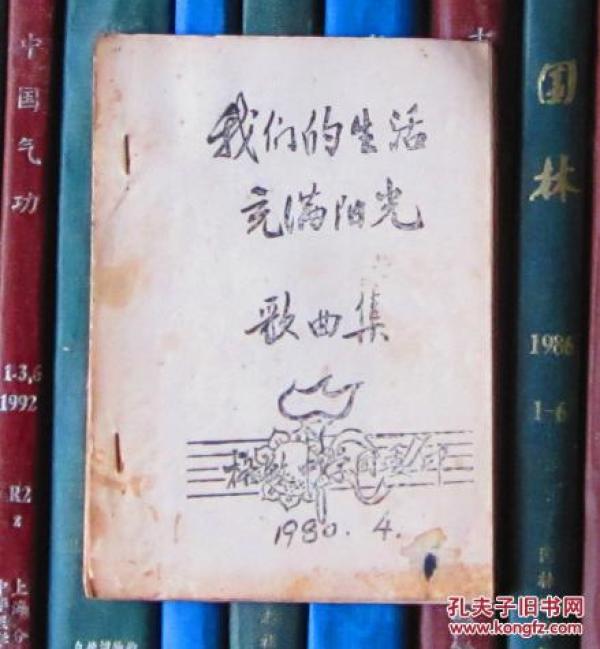 我们的生活
充满阳光
歌曲集
1980.4.
中国气功
1-3,6
1992
R2
z
园林
1986
1-6
孔夫子旧书网
www.kongfz.com